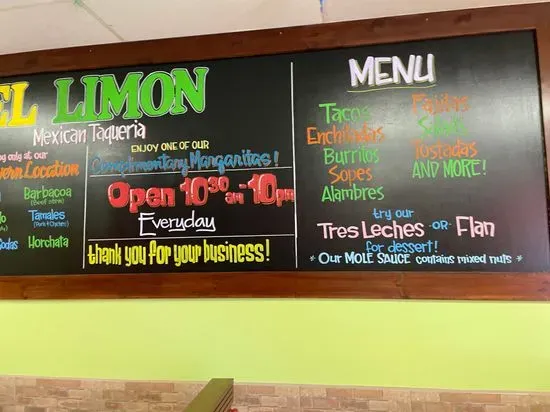 EL LIMON
Mexican Taqueria
only at our
Location
Barbacoa
(Beef stew)
Tamales
(Pork & Chicken)
Horchata
ENJOY ONE OF OUR
Complimentary Margaritas!
Open 10 30 am - 10 pm
Everyday
thank you for your business!
MENU
Tacos
Enchiladas
Burritos
Sopes
Alambres
Fajitas
Salads
Tostadas
AND MORE!
try our
Tres Leches -OR- Flan
for dessert!
* Our MOLE SAUCE contains mixed nuts *